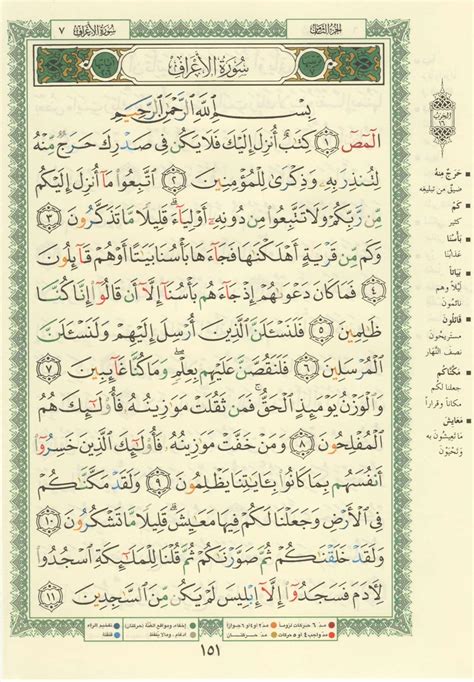 ٧ سُورَةُ الأَعۡرَافِ
الجُزءُ الثَّامِنُ
سُورَةُ الأَعۡرَافِ
بِسۡمِ ٱللَّهِ ٱلرَّحۡمَٰنِ ٱلرَّحِيمِ
الٓمٓصٓ ١ كِتَٰبٌ أُنزِلَ إِلَيۡكَ فَلَا يَكُن فِي صَدۡرِكَ حَرَجٞ مِّنۡهُ
لِتُنذِرَ بِهِۦ وَذِكۡرَىٰ لِلۡمُؤۡمِنِينَ ٢ ٱتَّبِعُواْ مَآ أُنزِلَ إِلَيۡكُم
مِّن رَّبِّكُمۡ وَلَا تَتَّبِعُواْ مِن دُونِهِۦٓ أَوۡلِيَآءَۗ قَلِيلٗا مَّا تَذَكَّرُونَ ٣
وَكَم مِّن قَرۡيَةٍ أَهۡلَكۡنَٰهَا فَجَآءَهَا بَأۡسُنَا بَيَٰتًا أَوۡ هُمۡ قَآئِلُونَ
٤ فَمَا كَانَ دَعۡوَىٰهُمۡ إِذۡ جَآءَهُم بَأۡسُنَآ إِلَّآ أَن قَالُوٓاْ إِنَّا كُنَّا
ظَٰلِمِينَ ٥ فَلَنَسۡـَٔلَنَّ ٱلَّذِينَ أُرۡسِلَ إِلَيۡهِمۡ وَلَنَسۡـَٔلَنَّ
ٱلۡمُرۡسَلِينَ ٦ فَلَنَقُصَّنَّ عَلَيۡهِم بِعِلۡمٖۖ وَمَا كُنَّا غَآئِبِينَ ٧
وَٱلۡوَزۡنُ يَوۡمَئِذٍ ٱلۡحَقُّۚ فَمَن ثَقُلَتۡ مَوَٰزِينُهُۥ فَأُوْلَٰٓئِكَ هُمُ
ٱلۡمُفۡلِحُونَ ٨ وَمَنۡ خَفَّتۡ مَوَٰزِينُهُۥ فَأُوْلَٰٓئِكَ ٱلَّذِينَ خَسِرُوٓاْ
أَنفُسَهُم بِمَا كَانُواْ بِـَٔايَٰتِنَا يَظۡلِمُونَ ٩ وَلَقَدۡ مَكَّنَّٰكُمۡ
فِي ٱلۡأَرۡضِ وَجَعَلۡنَا لَكُمۡ فِيهَا مَعَٰيِشَۗ قَلِيلٗا مَّا تَشۡكُرُونَ ١٠
وَلَقَدۡ خَلَقۡنَٰكُمۡ ثُمَّ صَوَّرۡنَٰكُمۡ ثُمَّ قُلۡنَا لِلۡمَلَٰٓئِكَةِ ٱسۡجُدُواْ
لِأٓدَمَ فَسَجَدُوٓاْ إِلَّآ إِبۡلِيسَ لَمۡ يَكُن مِّنَ ٱلسَّٰجِدِينَ ١١
الحِزب
١٦
حَرَجٌ مِنْهُ
ضيق من تبليغه
كَمْ
كثير
بَأْسُنَا
عذابنا
بَيَاتاً
ليلاً وهم
نائمون
قَائِلُونَ
مستريحون
نصف النّهار
مَكَّنَّاكُمْ
جعلنا لكم
مكاناً وقراراً
مَعَايِشَ
ما تعيشون به
وتحيون
مدّ ٦ حركات لزوماً
مدّ ٢ أو ٤ أو ٦ جوازاً
إخفاء، ومواقع الغنّة (حركتان)
تفخيم الراء
مدّ واجب ٤ أو ٥ حركات
مدّ حركتان
ادغام، وما لا يلفظ
قلقلة
١٥١